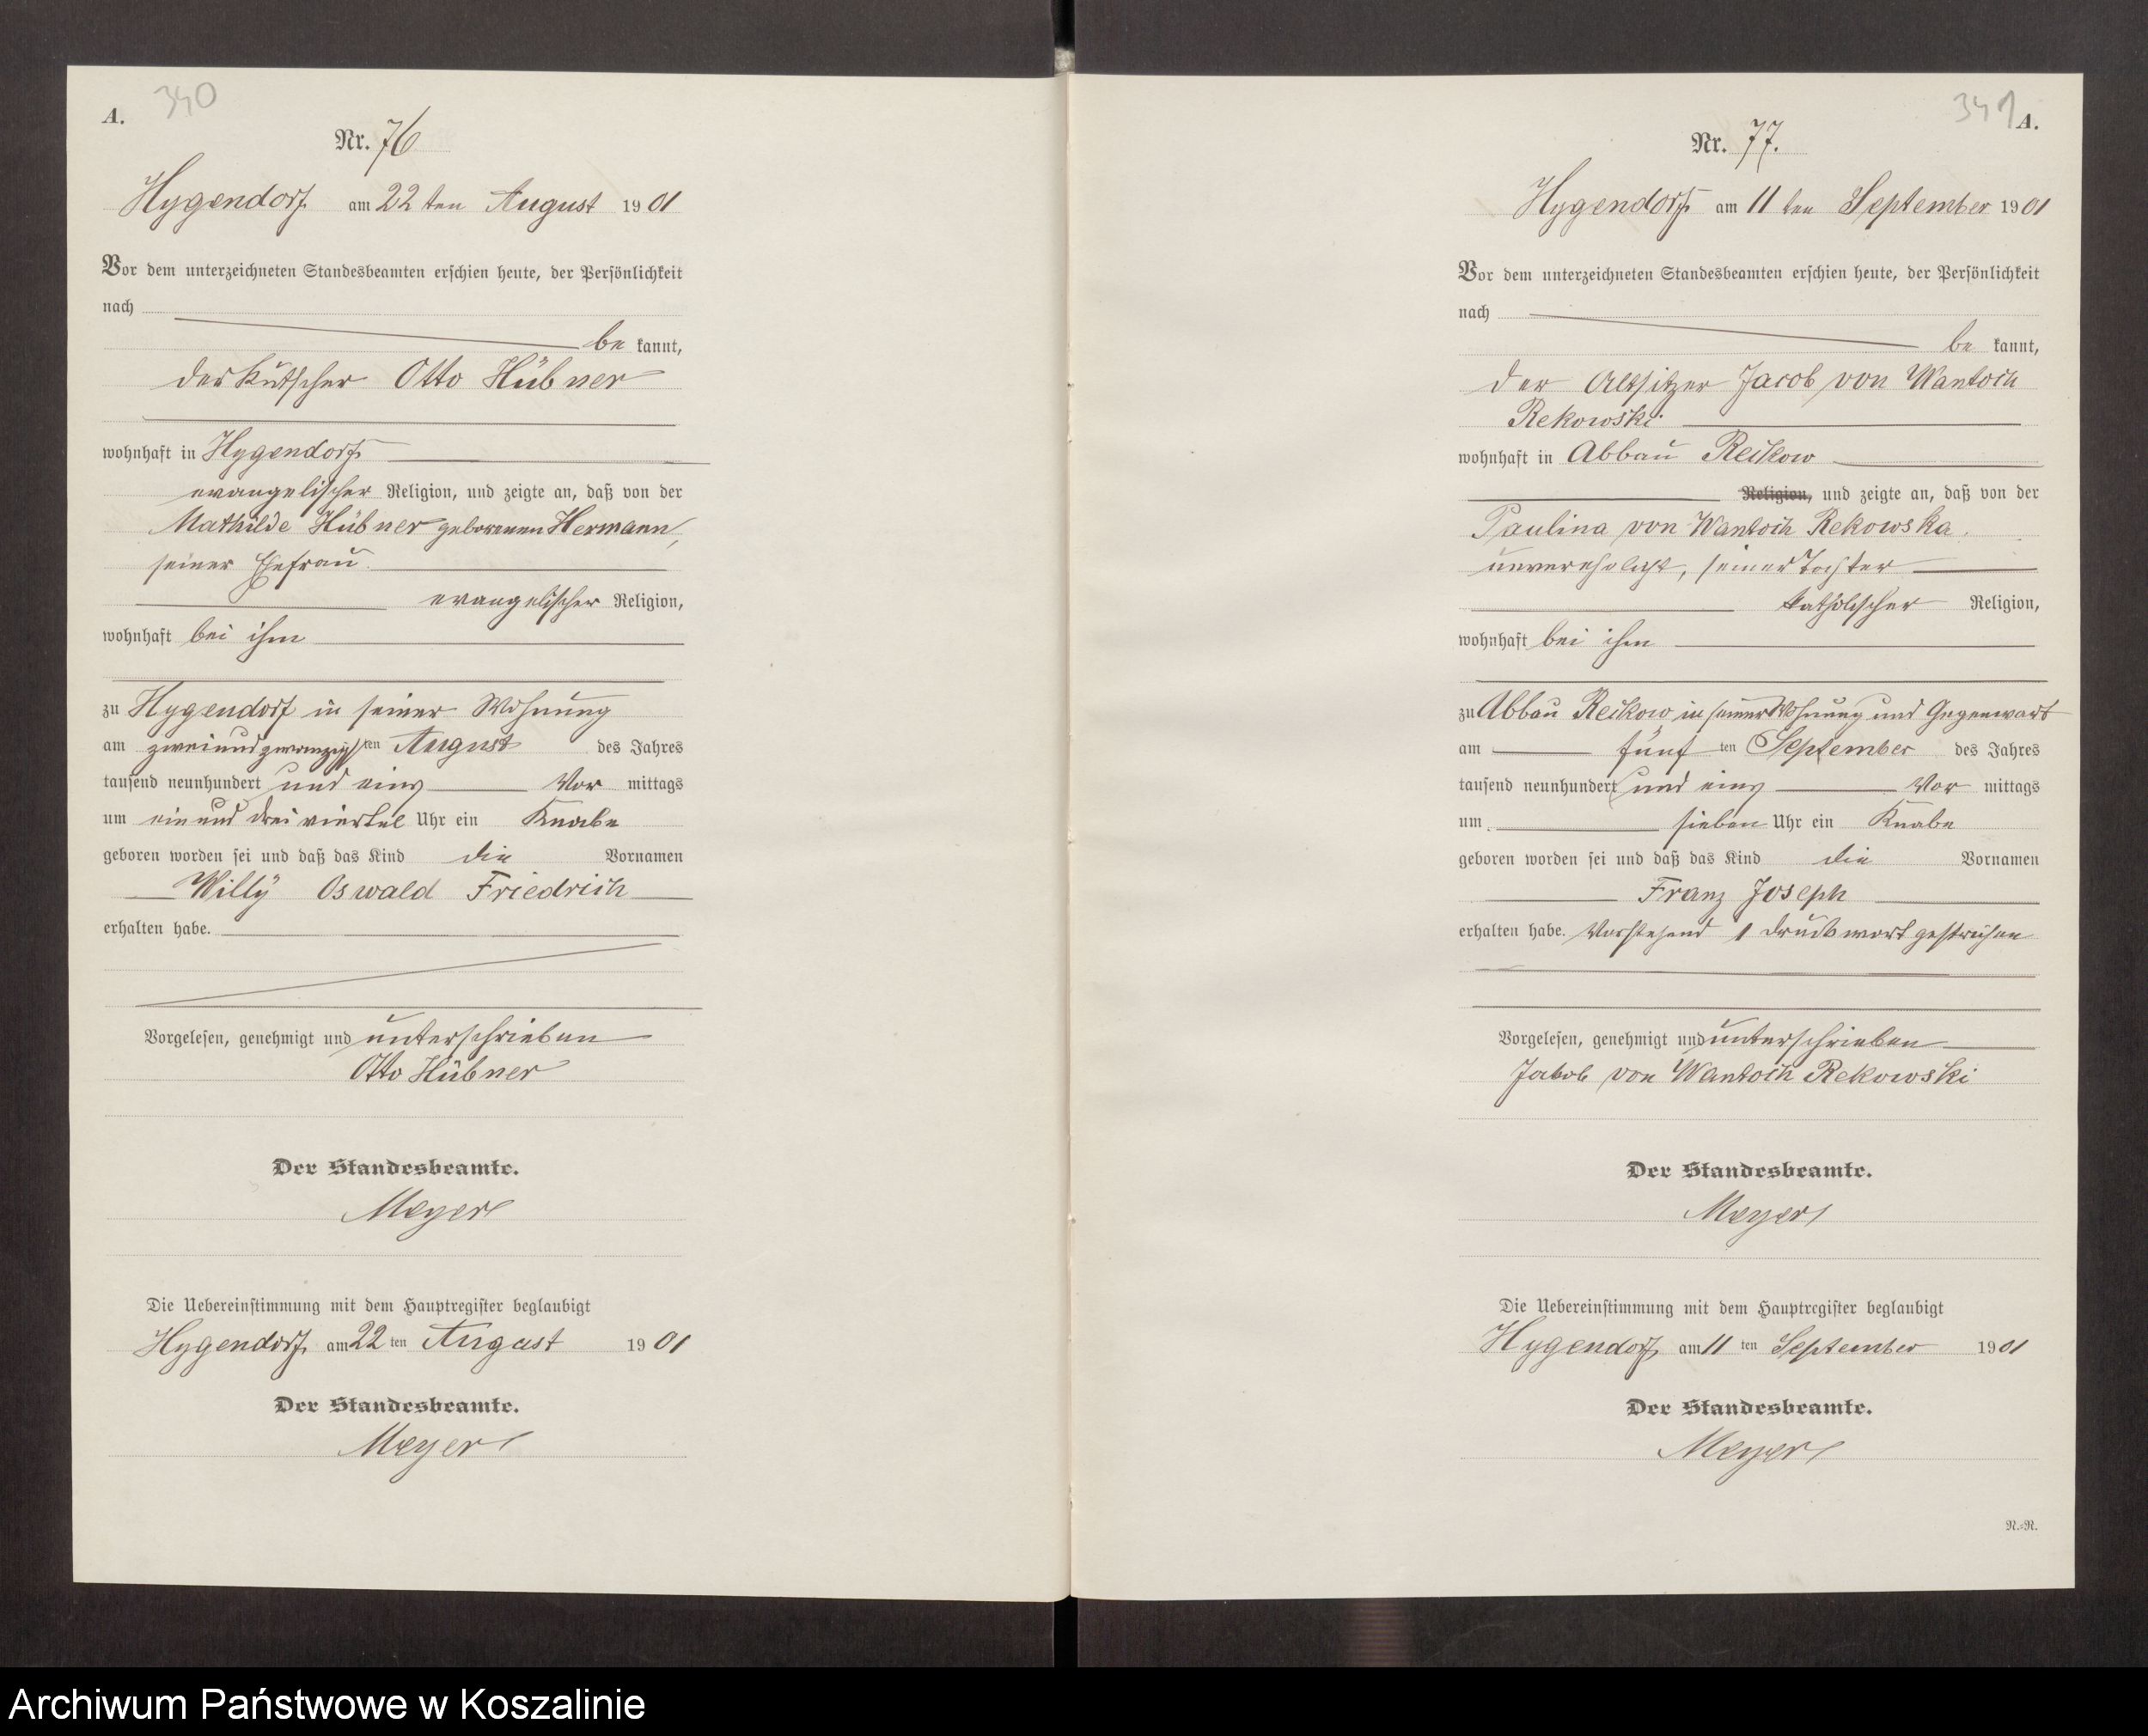 340
A.
Nr. 76
Hygendorf am 22 ten August 1901
Vor dem unterzeichneten Standesbeamten erschien heute, der Persönlichkeit
nach
be kannt,
der Kutscher Otto Hübner
wohnhaft in Hygendorf
evangelischer Religion, und zeigte an, daß von der
Mathilde Hübner geborenen Hermann,
seiner Ehefrau
evangelischer Religion,
wohnhaft bei ihm
zu Hygendorf in seiner Wohnung
am zweiundzwanzigsten August des Jahres
tausend neunhundert und eins Vor mittags
um ein und drei viertel Uhr ein Knabe
geboren worden sei und daß das Kind die Vornamen
Willÿ Oswald Friedrich
erhalten habe.
Vorgelesen, genehmigt und unterschrieben
Otto Hübner
Der Standesbeamte.
Meyer
Die Uebereinstimmung mit dem Hauptregister beglaubigt
Hygendorf, am 22 ten August 1901
Der Standesbeamte.
Meyer
341
A.
Nr. 77.
Hygendorf am 11 ten September 1901
Vor dem unterzeichneten Standesbeamten erschien heute, der Persönlichkeit
nach
be kannt,
der Altsitzer Jacob von Wantoch
Rekowski
wohnhaft in Abbau Reckow
Religion, und zeigte an, daß von der
Paulina von Wantoch Rekowska,
unverehelicht, seiner Tochter
katholischer Religion,
wohnhaft bei ihm
zu Abbau Reckow in seiner Wohnung und Gegenwart
am fünf ten September des Jahres
tausend neunhundert und eins Vor mittags
um sieben Uhr ein Knabe
geboren worden sei und daß das Kind die Vornamen
Franz Joseph
erhalten habe. Vorstehend 1 Druckwort gestrichen
Vorgelesen, genehmigt und unterschrieben
Jakob von Wantoch Rekowski
Der Standesbeamte.
Meyer
Die Uebereinstimmung mit dem Hauptregister beglaubigt
Hygendorf, am 11 ten September 1901
Der Standesbeamte.
Meyer
N.-N.
Archiwum Państwowe w Koszalinie